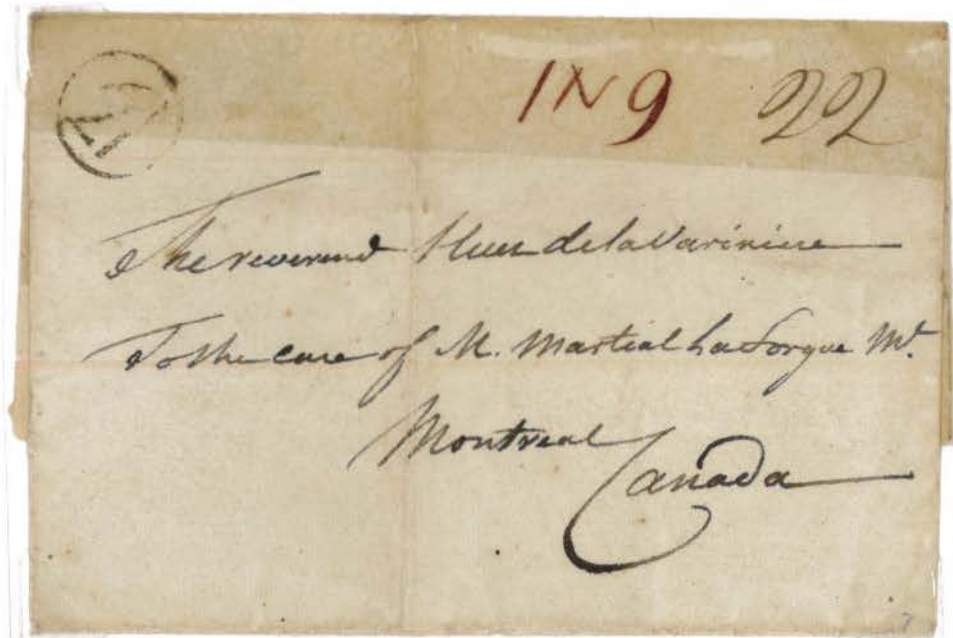 1N9 22
The reverend Huet de la Valiniere
To the care of M. Martial La forgue Mt.
Montreal
Canada
7